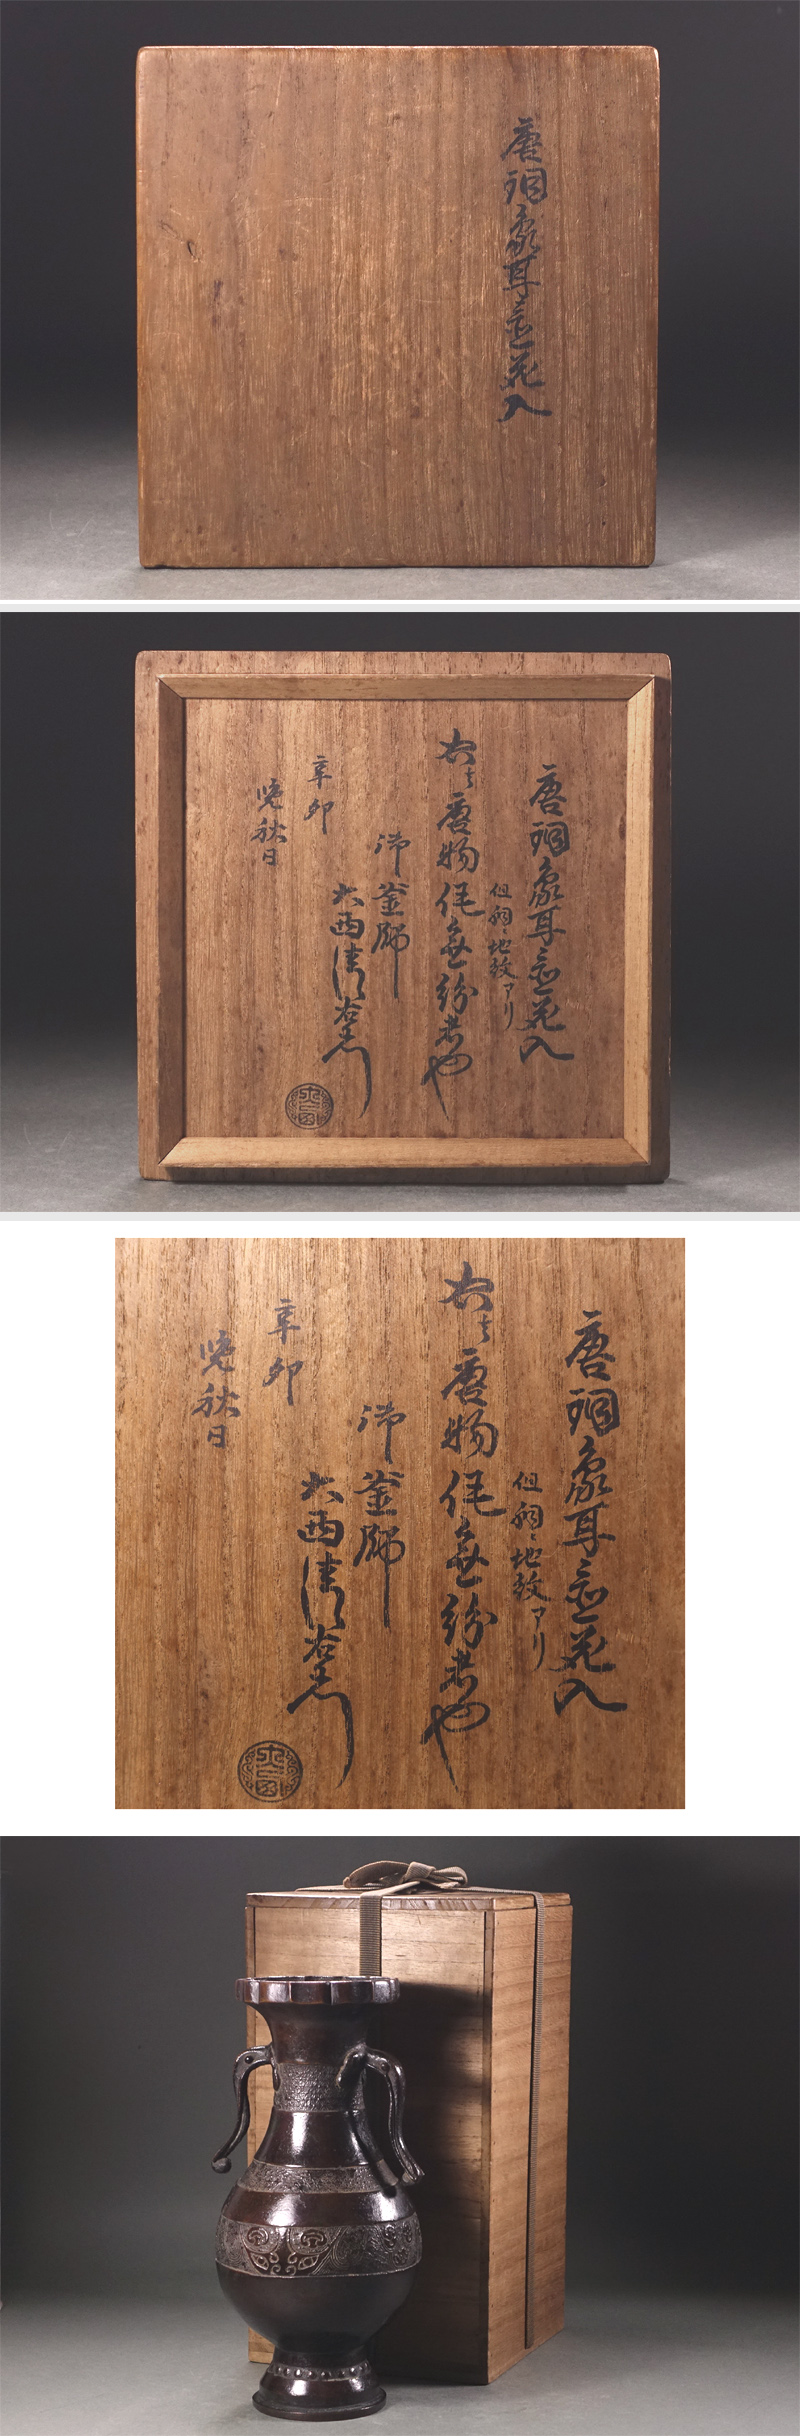 唐銅象耳〓花入
唐銅象耳〓花入
但銅ニ地紋アリ
右者唐物作無紛者也
御釜師
大西清右衛門
辛卯
晩秋日
唐銅象耳〓花入
但銅ニ地紋アリ
右者唐物作無紛者也
御釜師
大西清右衛門
辛卯
晩秋日